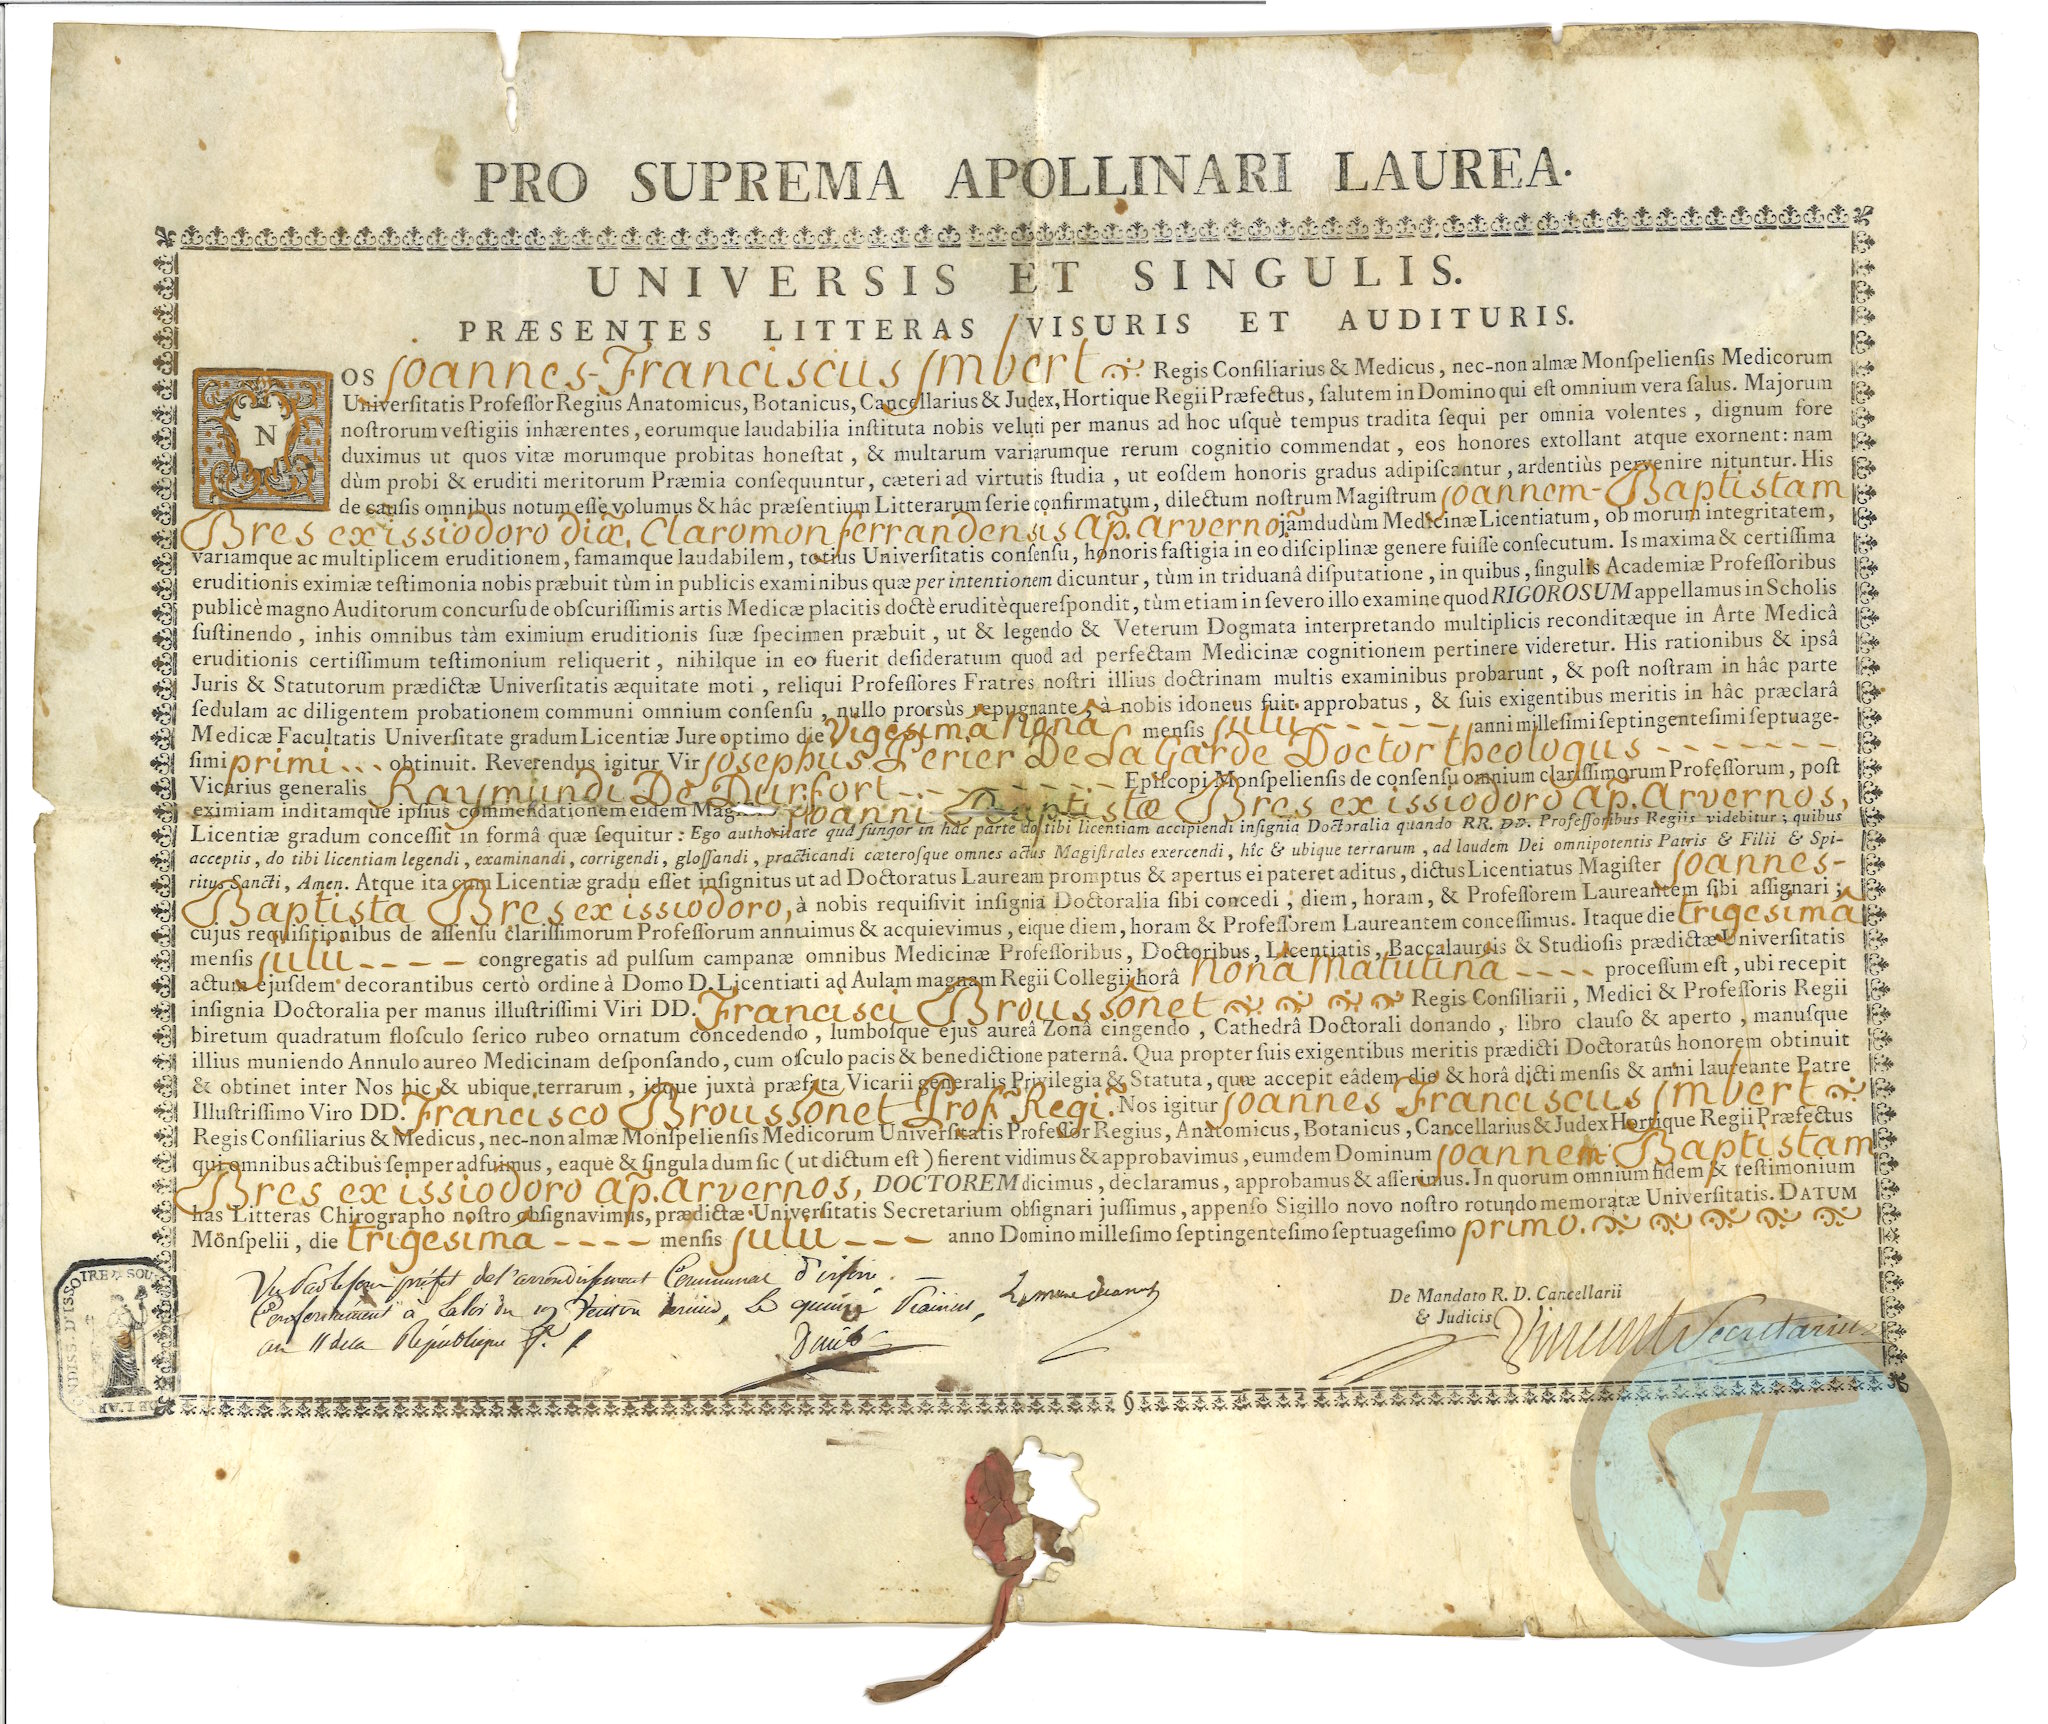 PRO SUPREMA APOLLINARI LAUREA.
UNIVERSIS ET SINGULIS.
PRÆSENTES LITTERAS VISURIS ET AUDITURIS.
NOS Joannes-Franciscus Imbert Regis Conſiliarius & Medicus, nec-non almæ Monſpelienſis Medicorum
Univerſitatis Profeſſor Regius Anatomicus, Botanicus, Cancellarius & Judex, Hortique Regii Præfectus, ſalutem in Domino qui eſt omnium vera ſalus. Majorum
noſtrorum veſtigiis inhærentes, eorumque laudabilia inſtituta nobis veluti per manus ad hoc uſquè tempus tradita ſequi per omnia volentes, dignum fore
duximus ut quos vitæ morumque probitas honeſtat, & multarum variarumque rerum cognitio commendat, eos honores extollant atque exornent: nam
dùm probi & eruditi meritorum Præmia conſequuntur, cæteri ad virtutis ſtudia, ut eoſdem honoris gradus adipiſcantur, ardentiùs pervenire nituntur. His
de cauſis omnibus notum eſſe volumus & hâc præſentium Litterarum ſerie confirmatum, dilectum noſtrum Magiſtrum Joannem-Baptistam
Bres ex issiodoro diœ. Claromonferrandensis ap̃. arverno. jamdudùm Medicinæ Licentiatum, ob morum integritatem,
variamque ac multiplicem eruditionem, famamque laudabilem, totius Univerſitatis conſenſu, honoris faſtigia in eo diſciplinæ genere fuiſſe conſecutum. Is maxima & certiſſima
eruditionis eximiæ teſtimonia nobis præbuit tùm in publicis examinibus quæ per intentionem dicuntur, tùm in triduanâ diſputatione, in quibus, ſingulis Academiæ Profeſſoribus
publicè magno Auditorum concurſu de obſcuriſſimis artis Medicæ placitis doctè eruditèque reſpondit, tùm etiam in ſevero illo examine quod RIGOROSUM appellamus in Scholis
ſuſtinendo, inhis omnibus tàm eximium eruditionis ſuæ ſpecimen præbuit, ut & legendo & Veterum Dogmata interpretando multiplicis reconditæque in Arte Medicâ
eruditionis certiſſimum teſtimonium reliquerit, nihilque in eo fuerit deſideratum quod ad perfectam Medicinæ cognitionem pertinere videretur. His rationibus & ipsâ
Juris & Statutorum prædictæ Univerſitatis æquitate moti, reliqui Profeſſores Fratres noſtri illius doctrinam multis examinibus probarunt, & poſt noſtram in hâc parte
ſedulam ac diligentem probationem communi omnium conſenſu, nullo prorsùs repugnante, à nobis idoneus fuit approbatus, & ſuis exigentibus meritis in hâc præclarâ
Medicæ Facultatis Univerſitate gradum Licentiæ Jure optimo die Vigesima Nona mensis Julii ----- anni milleſimi ſeptingenteſimi ſeptuage-
ſimi primi --- obtinuit. Reverendus igitur Vir Josephus Perier De La Garde Doctor theologus -------
Vicarius generalis Raymundi De Durfort ------- Epiſcopi Monſpelienſis de conſenſu omnium clariſſimorum Profeſſorum, poſt
eximiam inditamque ipſius commendationem eidem Joanni Baptistæ Bres ex issiodoro ap̃. arvernos,
Licentiæ gradum conceſſit in formâ quæ ſequitur: Ego authoritate quâ fungor in hâc parte do tibi licentiam accipiendi inſignia Doctoralia quando RR. DD. Profeſſoribus Regiis videbitur; quibus
acceptis, do tibi licentiam legendi, examinandi, corrigendi, gloſſandi, practicandi cæteroſque omnes actus Magiſtrales exercendi, hîc & ubique terrarum, ad laudem Dei omnipotentis Patris & Filii & Spi-
ritus Sancti, Amen. Atque ita cum Licentiæ gradu eſſet inſignitus ut ad Doctoratus Lauream promptus & apertus ei pateret aditus, dictus Licentiatus Magiſter Joannes-
Baptista Bres ex issiodoro, à nobis requiſivit inſignia Doctoralia ſibi concedi; diem, horam, & Profeſſorem Laureantem ſibi aſſignari;
cujus requiſitionibus de aſſenſu clariſſimorum Profeſſorum annuimus & acquievimus, eique diem, horam & Profeſſorem Laureantem conceſſimus. Itaque die trigesimâ
mensis Julii ---- congregatis ad pulſum campanæ omnibus Medicinæ Profeſſoribus, Doctoribus, Licentiatis, Baccalaureis & Studioſis prædictæ Univerſitatis
actum ejuſdem decorantibus certò ordine à Domo D. Licentiati ad Aulam magnam Regii Collegii horâ Nonâ Matutinâ ---- proceſſum eſt, ubi recepit
inſignia Doctoralia per manus illuſtriſſimi Viri DD. Francisci Broussonet Regis Conſiliarii, Medici & Profeſſoris Regii
biretum quadratum floſculo ſerico rubeo ornatum concedendo, lumboſque ejus aureâ Zonâ cingendo, Cathedrâ Doctorali donando, libro clauſo & aperto, manuſque
illius muniendo Annulo aureo Medicinam deſponſando, cum oſculo pacis & benedictione paternâ. Qua propter ſuis exigentibus meritis prædicti Doctoratûs honorem obtinuit
& obtinet inter Nos hic & ubique terrarum, idque juxtà præfata Vicarii generalis Privilegia & Statuta, quæ accepit eâdem die & horâ dicti menſis & anni laureante Patre
Illuſtriſſimo Viro DD. Francisco Broussonet Prof. Regi. Nos igitur Joannes Franciscus Imbert
Regis Conſiliarius & Medicus, nec-non almæ Monſpelienſis Medicorum Univerſitatis Profeſſor Regius, Anatomicus, Botanicus, Cancellarius & Judex Hortique Regii Præfectus
qui omnibus actibus ſemper adfuimus, eaque & ſingula dum ſic (ut dictum eſt) fierent vidimus & approbavimus, eumdem Dominum Joannem-Baptistam
Bres ex issiodoro ap̃. arvernos, DOCTOREM dicimus, declaramus, approbamus & aſſerimus. In quorum omnium fidem & teſtimonium
has Litteras Chirographo noſtro obſignavimus, prædictæ Univerſitatis Secretarium obſignari juſſimus, appenſo Sigillo novo noſtro rotundo memoratæ Univerſitatis. DATUM
Mönſpelii, die trigesima ---- menſis Julii --- anno Domino milleſimo ſeptingenteſimo ſeptuageſimo primo.
Vu par le sous préfet de l'arrondissement Communal d'issoire. —
Conformément à la loi du 19 Ventôse dernier, le quinze
an 11 de la République
De Mandato R. D. Cancellarii
& Judicis
Vincent Secretarius
F